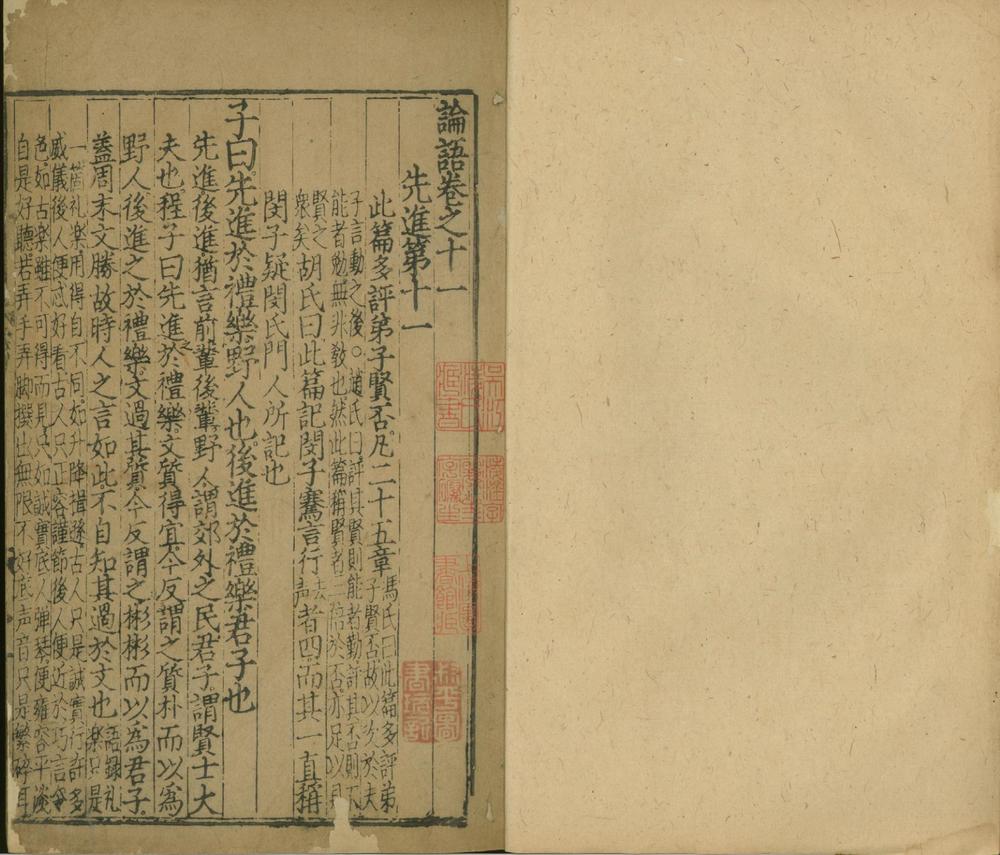 論語卷之十一
先進第十一
此篇多評弟子賢否凡二十五章馮氏曰此篇多評弟
子賢否故以次於夫
子言動之後○趙氏曰評其賢則能者勤評其否則不
能者勉無非教也然此篇稱賢者三倍於否亦足以見
賢之
衆矣胡氏曰此篇記閔子騫言行去声者四而其一直稱
閔子疑閔氏門人所記也
子曰先進於禮樂野人也後進於禮樂君子也
先進後進猶言前輩後輩野人謂郊外之民君子謂賢士大
夫也程子曰先進之於禮樂文質得宜今反謂之質朴而以為
野人後進之於禮樂文過其質今反謂之彬彬而以為君子
蓋周末文勝故時人之言如此不自知其過於文也語録礼
樂只是
一箇礼樂用得自不同如升降揖遜古人只是誠實行許多
威儀後人便忒好看古人只正容謹節後人便近於巧言令
色如古樂雖不可得而見只如誠實底人彈琴便雍容平淡
自是好聽若弄手弄脚撰出無限不好底声音只是繁碎耳